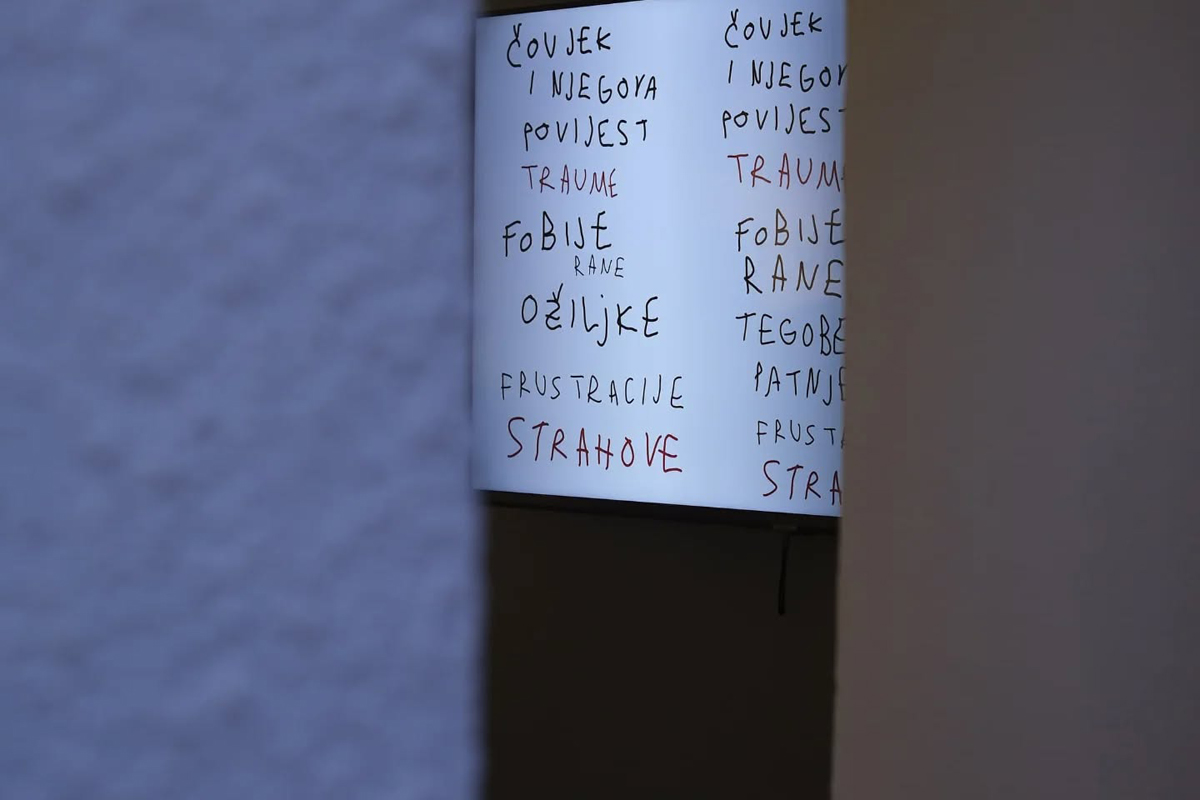 ČOVJEK
I NJEGOVA
POVIJEST
TRAUME
FOBIJE
RANE
OŽILJKE
FRUSTRACIJE
STRAHOVE
ČOVJEK
I NJEGOV
POVIJEST
TRAUME
FOBIJE
RANE
TEGOBE
PATNJE
FRUST
STRA